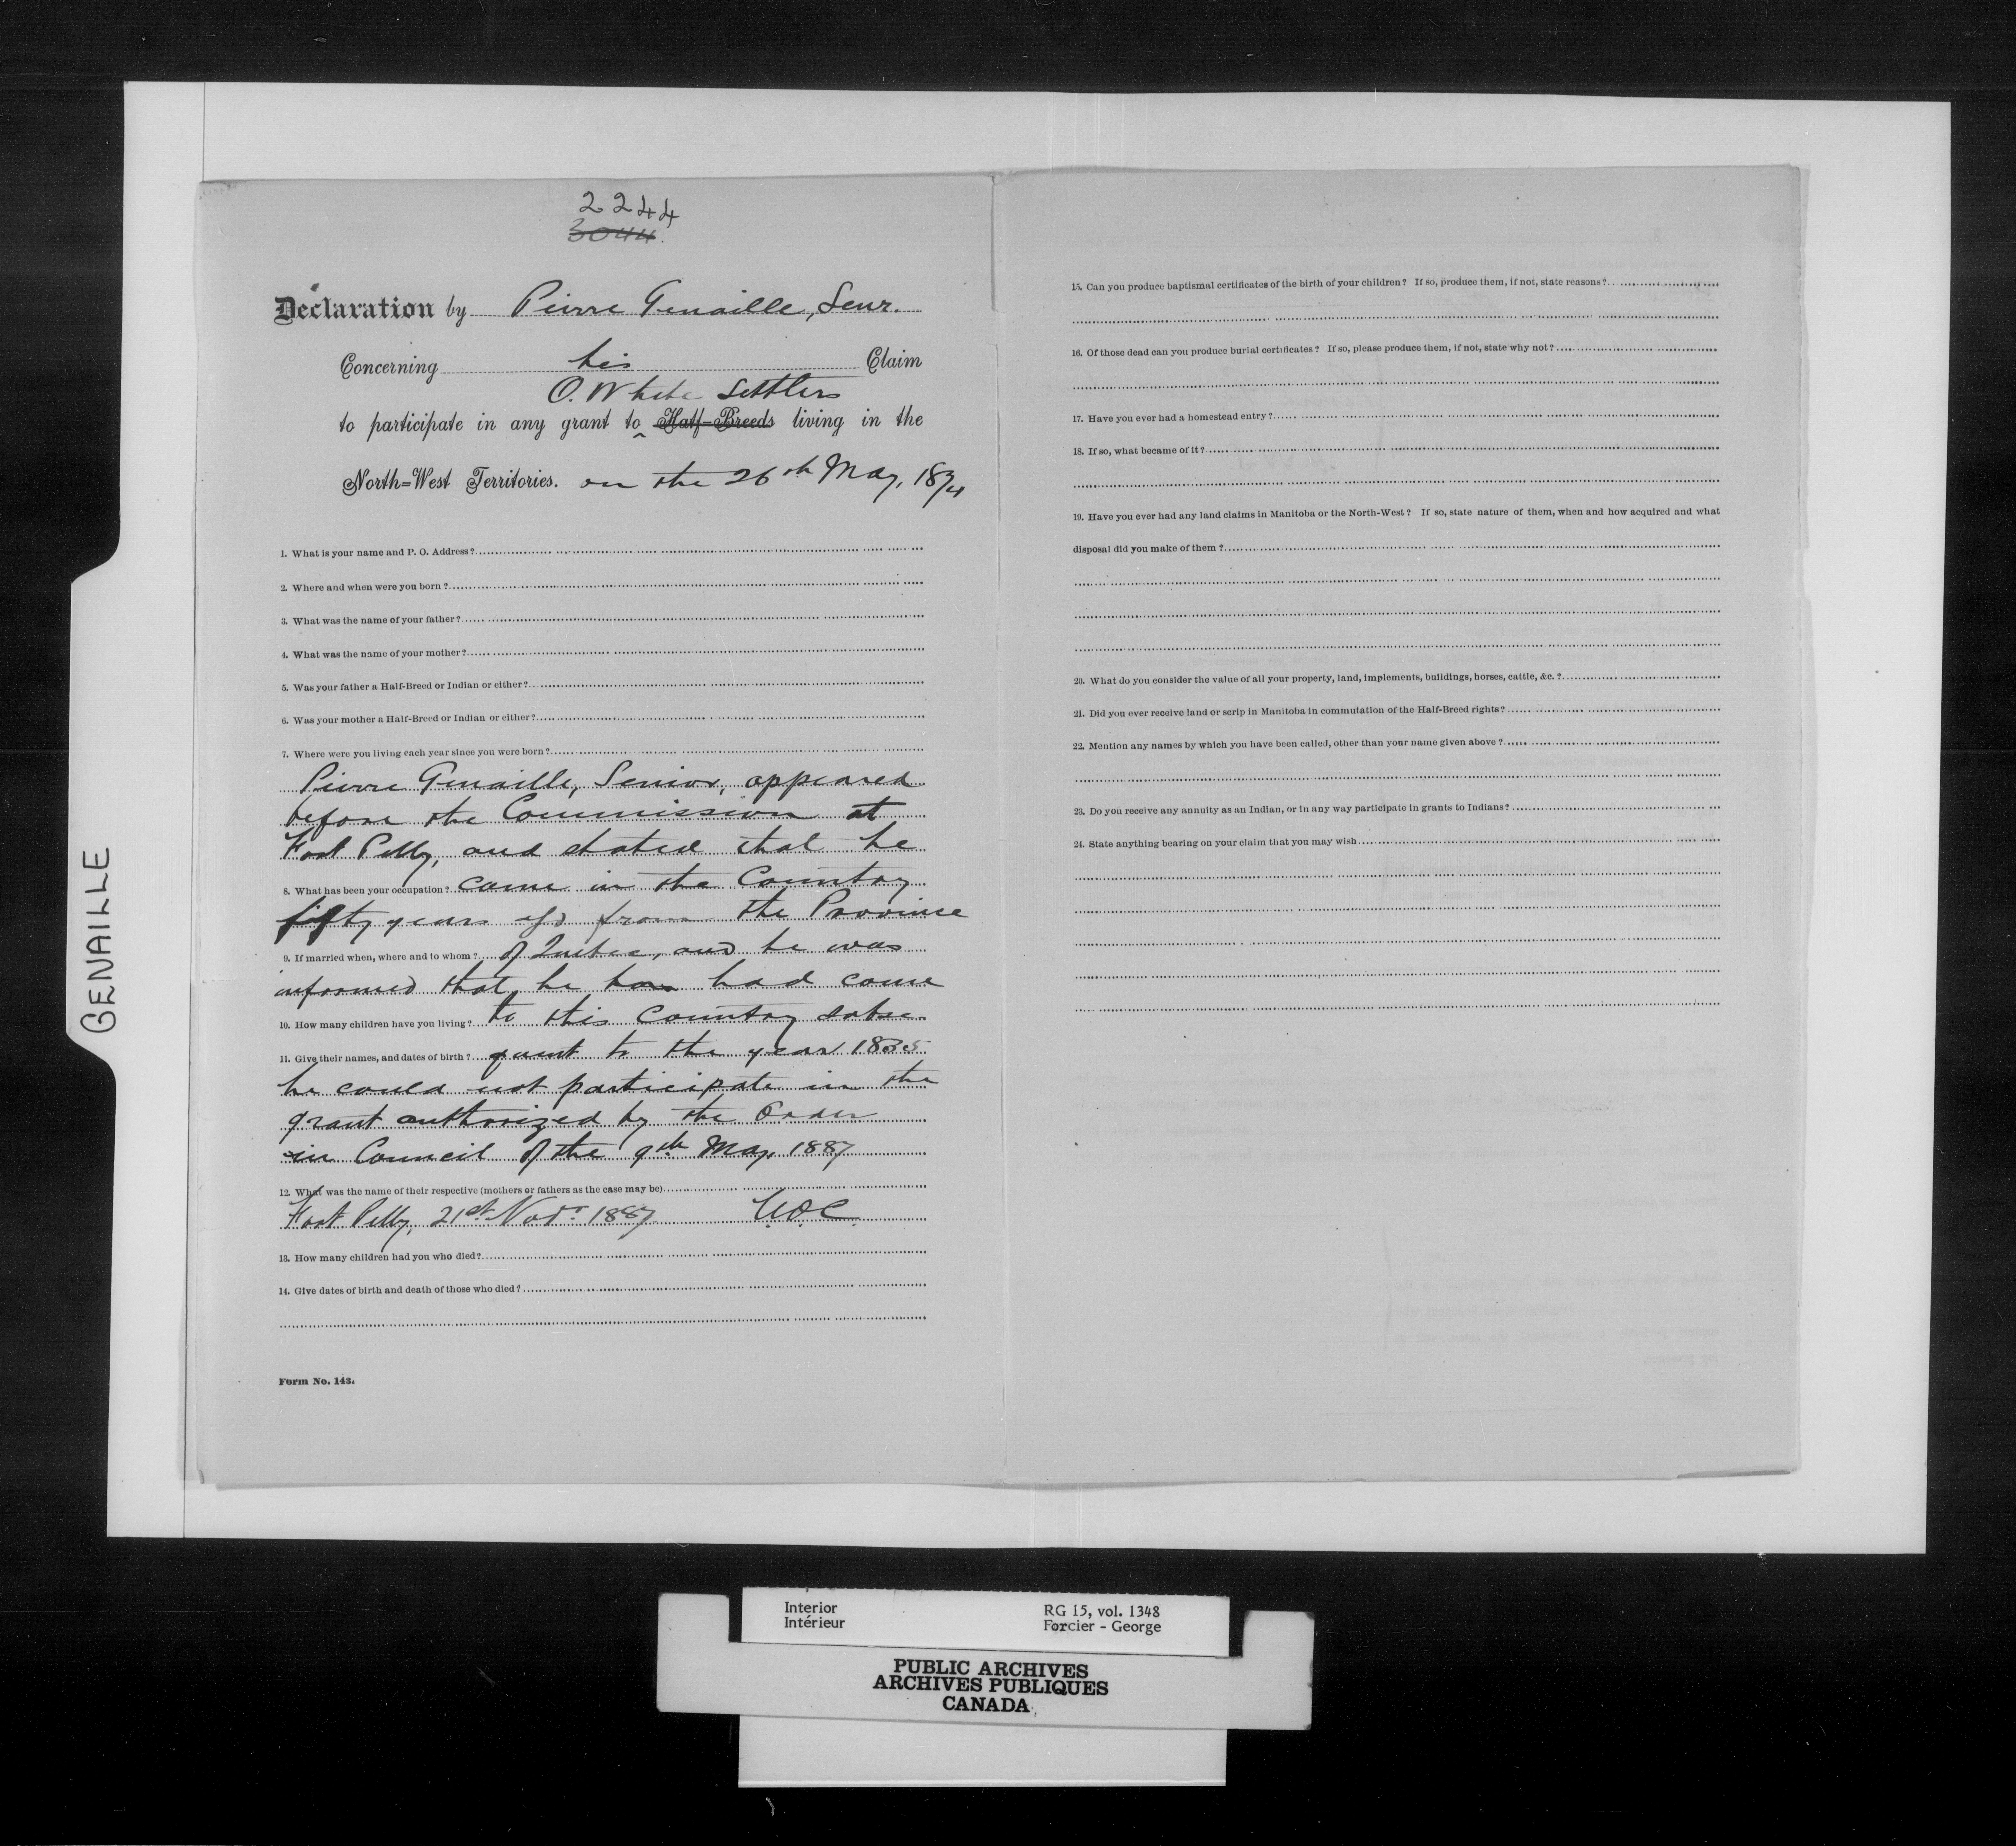 2244
3044.
Declaration by Pierre Genaille, Senr.
Concerning his Claim
O. White Settlers
to participate in any grant to Half-Breeds living in the
North-West Territories. on the 26th May, 1874
1. What is your name and P. O. Address?
2. Where and when were you born?
3. What was the name of your father?
4. What was the name of your mother?
5. Was your father a Half-Breed or Indian or either?
6. Was your mother a Half-Breed or Indian or either?
7. Where were you living each year since you were born?
Pierre Genaille, Senior, appeared
before the Commission at
Fort Pelly, and stated that he
8. What has been your occupation? came in the Country
fifty years ago from the Province
9. If married when, where and to whom? of Quebec, and he was
informed that he had come
10. How many children have you living? to this Country subse-
11. Give their names, and dates of birth? quent to the year 1835
he could not participate in the
grant authorized by the Order
in Council of the 9th May 1887
12. What was the name of their respective (mothers or fathers as the case may be)
Fort Pelly, 21st Novr. 1887
13. How many children had you who died?
14. Give dates of birth and death of those who died?
Form No. 143.
15. Can you produce baptismal certificates of the birth of your children? If so, produce them, if not, state reasons?
16. Of those dead can you produce burial certificates? If so, please produce them, if not, state why not?
17. Have you ever had a homestead entry?
18. If so, what became of it?
19. Have you ever had any land claims in Manitoba or the North-West? If so, state nature of them, when and how acquired and what
disposal did you make of them?
20. What do you consider the value of all your property, land, implements, buildings, horses, cattle, &c.?
21. Did you ever receive land or scrip in Manitoba in commutation of the Half-Breed rights?
22. Mention any names by which you have been called, other than your name given above?
23. Do you receive any annuity as an Indian, or in any way participate in grants to Indians?
24. State anything bearing on your claim that you may wish
GENAILLE
Interior RG 15, vol. 1348
Intérieur Forcier - George
PUBLIC ARCHIVES
ARCHIVES PUBLIQUES
CANADA